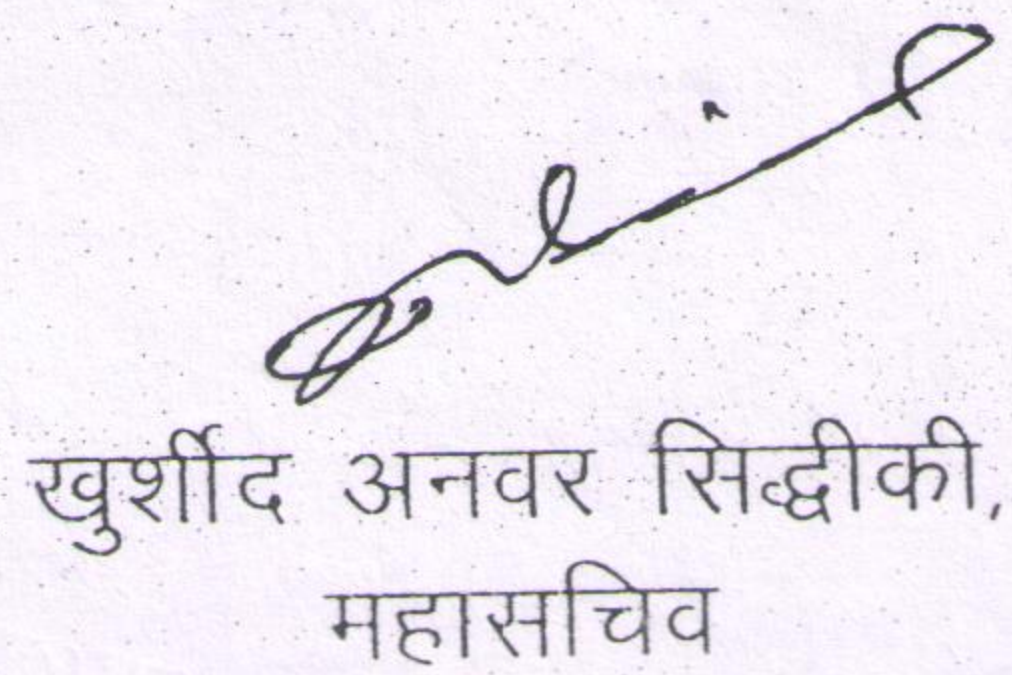 खुर्शीद अनवर सिद्धीकी,
महासचिव